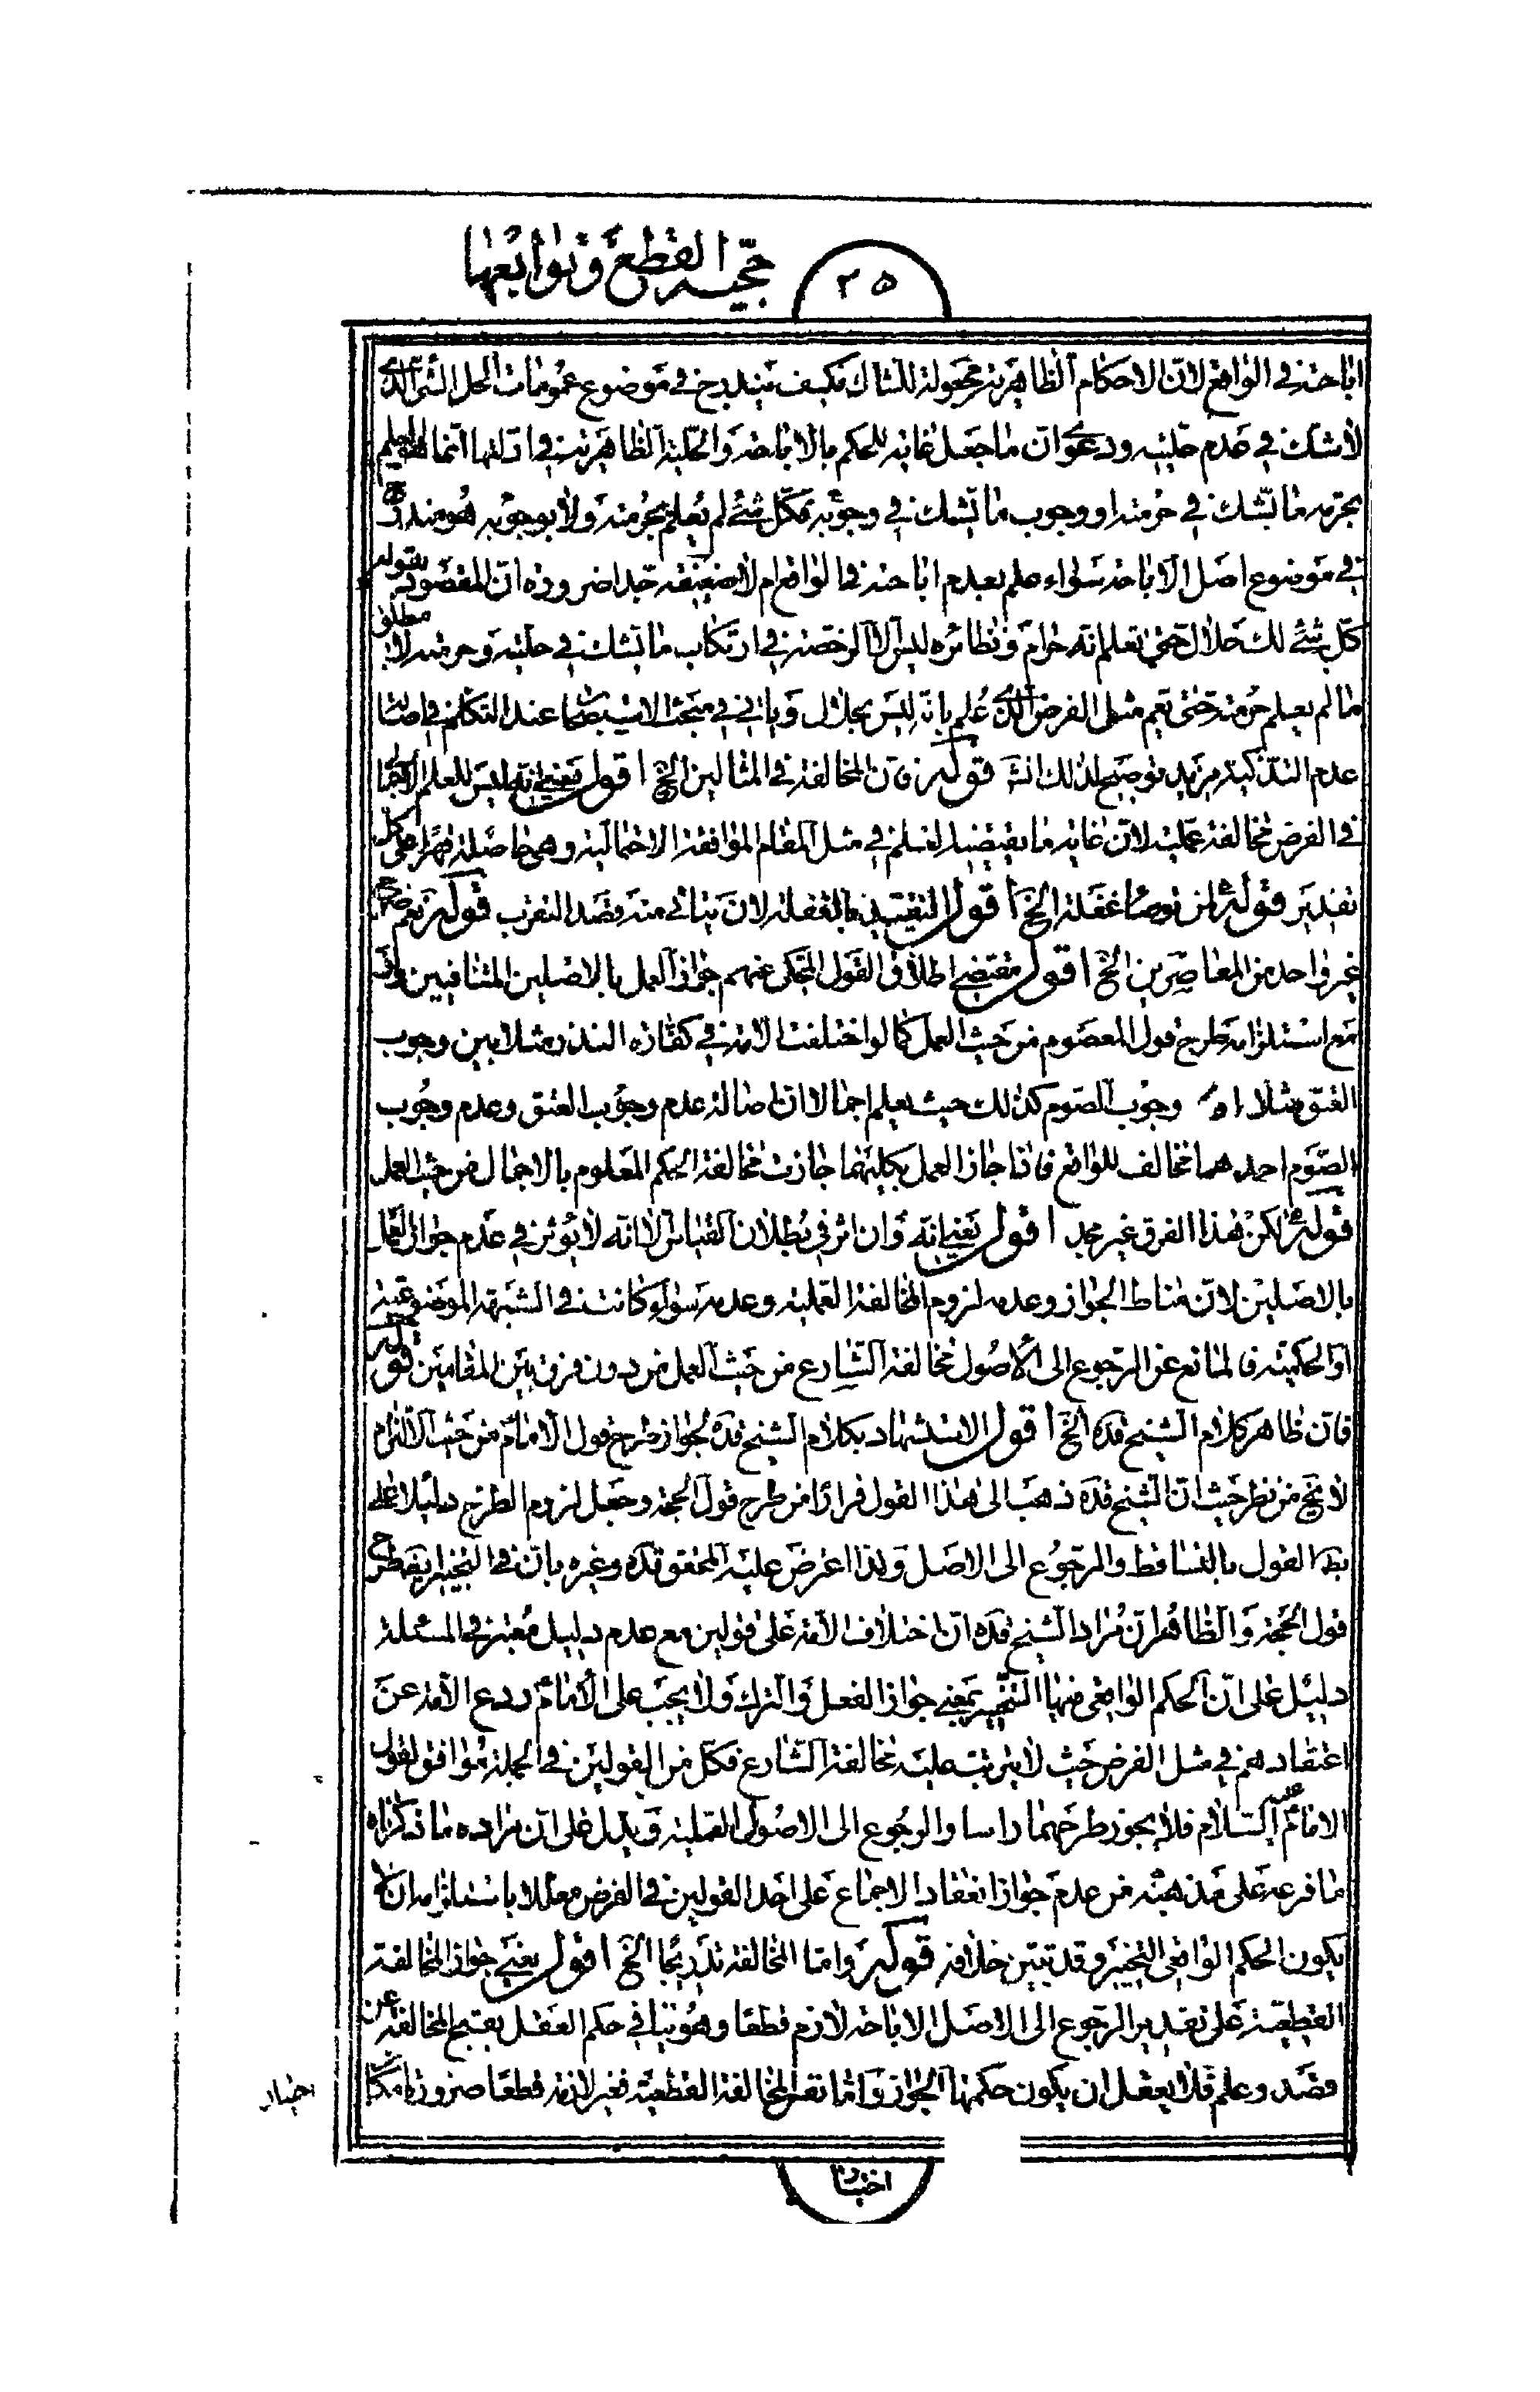 حجية القطع وتوابعها
٢٥
اباحته في الواقع لانّ الاحكام الظاهرية مجعولة للشاك فكيف يندرج في موضوع عمومات الحل الشئ الذي
لا شك في عدم حليته ودعوى ان ما جعل غاية للحكم بالاباحة والحلية الظاهرية في ادلتها انما هو العلم
بحرمة ما يشك في حرمته او وجوب ما يشك في وجوبه فكل شئ لم يعلم بحرمته ولا بوجوبه هو مندرج
في موضوع اصل الاباحة سواء علم بعدم اباحته في الواقع ام لا ضعيفة جدا ضرورة ان المقصود بقوله
كل شئ لك حلال حتى تعلم انه حرام ونظائره ليس الا الرخصة في ارتكاب ما يشك في حليته وحرمته لا مطلق
ما لم يعلم حرمته حتى تعم مثل الفرض الذي علم بانه ليس بحلال ويأتي في مبحث الاستصحاب عند التكلم في اصالة
عدم التذكية مزيد توضيح لذلك انش قوله فان المخالفة في المثالين الخ اقول يعني انه ليس للعلم الاجمالي
في الفرض مخالفة عملية لان غاية ما يقتضيه العلم في مثل المقام الموافقة الاحتمالية وهي حاصلة قهرا على كل
تقدير قوله لمن توضأ غفلة الخ اقول التقييد بالغفلة لان يتأتى منه قصد التقرب قوله نعم صرح
غير واحد من المعاصرين الخ اقول مقتضى اطلاق القول المحكي عنهم جواز العمل بالاصلين المتنافيين ولو
مع استلزامه طرح قول المعصوم من حيث العمل كما لو اختلفت الامة في كفارة النذر مثلا بين وجوب
العتق مثلا او وجوب الصوم كذلك حيث يعلم اجمالا ان اصالة عدم وجوب العتق وعدم وجوب
الصوم احدهما مخالف للواقع فاذا جاز العمل بكليهما جازت مخالفة الحكم المعلوم بالاجمال من حيث العمل
قوله لكن هذا الفرق غير مجد اقول يعني انه وان اثر في بطلان القياس الا انه لا يؤثر في عدم جواز العمل
بالاصلين لان مناط الجواز وعدمه لزوم المخالفة العملية وعدمه سواء كانت في الشبهة الموضوعية
او الحكمية فالمانع عن الرجوع الى الاصول مخالفة الشارع من حيث العمل من دون فرق بين المقامين قوله
فان ظاهر كلام الشيخ قده الخ اقول الاستشهاد بكلام الشيخ قده لجواز طرح قول الامام من حيث الالتزام
لا يخ من نظر حيث ان الشيخ قده ذهب الى هذا القول فرارا من طرح قول الحجة وجعل لزوم الطرح دليلا على
بطلان القول بالتساقط والرجوع الى الاصل ولذا اعترض عليه المحقق قده وغيره بان في التخيير ايضا طرح
قول الحجة والظاهر ان مراد الشيخ قده ان اختلاف الامة على قولين مع عدم دليل معتبر في المسئلة
دليل على ان الحكم الواقعي فيها التخيير بمعنى جواز الفعل والترك ولا يجب على الامام ردع الامة عن
اعتقادهم في مثل الفرض حيث لا يترتب عليه مخالفة الشارع فكل من القولين في الجملة موافق لقول
الامام عليه السلام فلا يجوز طرحهما راسا والرجوع الى الاصول العملية ويدل على ان مراده ما ذكرناه
ما فرعه على مذهبه من عدم جواز انعقاد الاجماع على احد القولين في الفرض معللا باستلزامه ان لا
يكون الحكم الواقعي التخيير وقد تبين خلافه قوله واما المخالفة تدريجا الخ اقول يعني جواز المخالفة
القطعية على تقدير الرجوع الى الاصل الاباحة لازم قطعا وهو ينافي حكم العقل بقبح المخالفة عن
قصد وعلم فلا يعقل ان يكون حكمها الجواز واما نفس المخالفة القطعية فغير لازمة قطعا ضرورة امكان
اختيار
اختيار